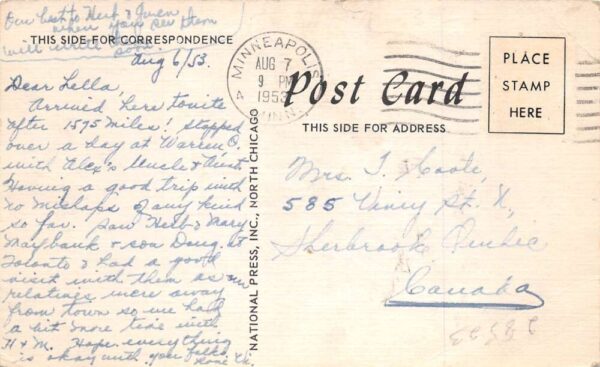 Our best to Herb & Gwen
when you see them
will write soon.
THIS SIDE FOR CORRESPONDENCE
Aug 6/53.
Dear Lella,
Arrived here tonite
after 1595 miles! Stopped
over a day at Warren O.
with Alex's Uncle & Aunt.
Having a good trip with
no mishaps of any kind
so far. Saw Herb & Mary
Maybank & son Doug. at
Toronto & had a good
visit with them as my
relatives were away
from town so we had
a bit more time with
H & M. Hope everything
is okay with you folks.
NATIONAL PRESS, INC., NORTH CHICAGO
MINNEAPOLIS
AUG 7
9 PM
1953
MINN.
Post Card
THIS SIDE FOR ADDRESS
PLACE
STAMP
HERE
Mrs. T. Coote,
585 Vimy St. N,
Sherbrooke Quebec
Canada